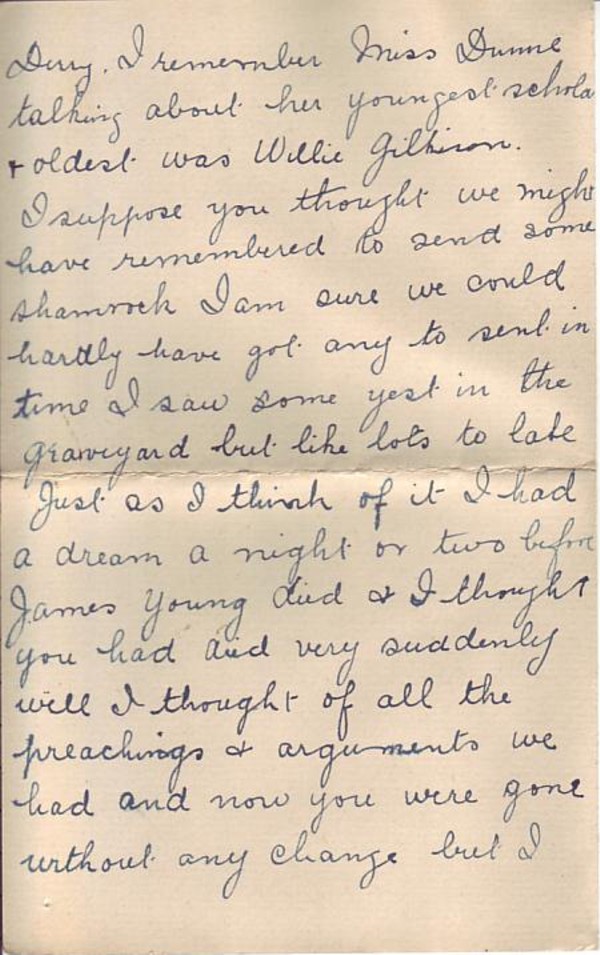 Derry. I remember Miss Dunne
talking about her youngest schola
& oldest was Willie Gilkison.
I suppose you thought we might
have remembered to send some
shamrock I am sure we could
hardly have got any to sent in
time I saw some yest in the
graveyard but like lots to late
Just as I think of it I had
a dream a night or two before
James Young died & I thought
you had died very suddenly
well I thought of all the
preachings & arguments we
had and now you were gone
without any change but I